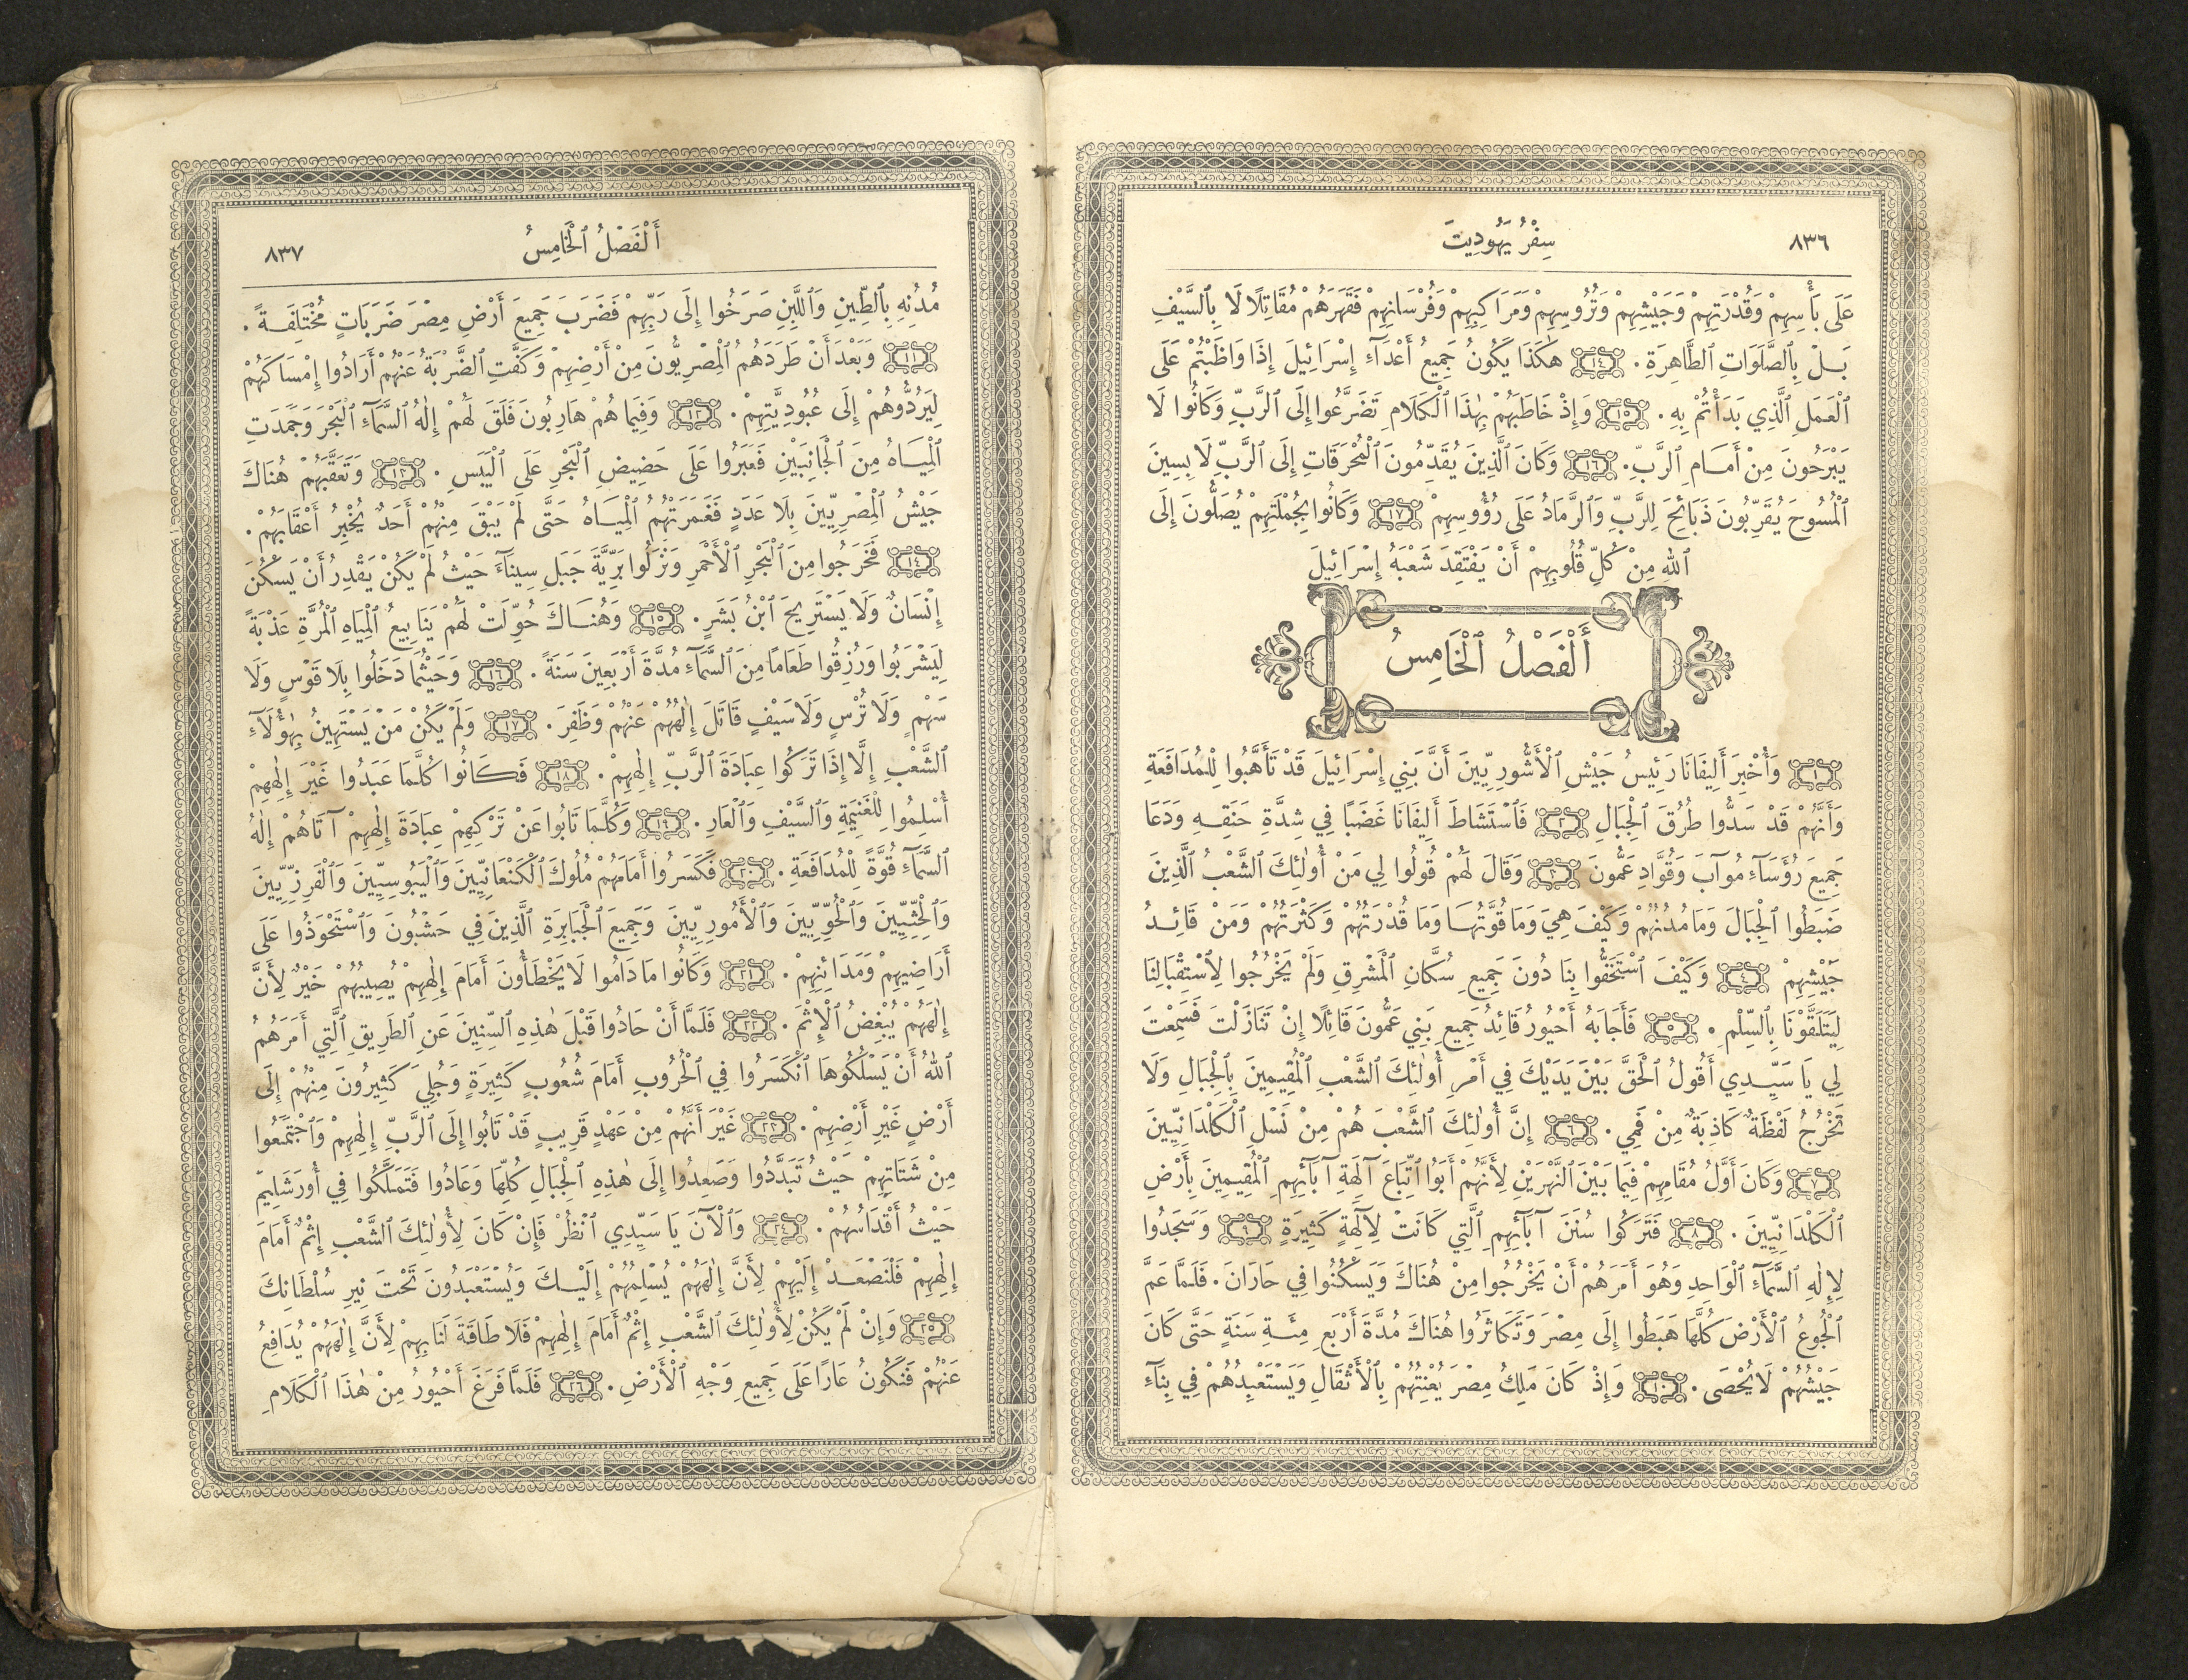 ٨٣٦
سِفْرُ يَهُودِيتَ
عَلَى بَأْسِهِمْ وَقُدْرَتِهِمْ وَجَيْشِهِمْ وَتُرُوسِهِمْ وَمَرَاكِبِهِمْ وَفُرْسَانِهِمْ فَقَهَرَهُمْ مُقَاتِلًا لَا بِٱلسَّيْفِ
بَلْ بِٱلصَّلَوَاتِ ٱلطَّاهِرَةِ . ١٤ هٰكَذَا يَكُونُ جَمِيعُ أَعْدَآءِ إِسْرَائِيلَ إِذَا وَاظَبْتُمْ عَلَى
ٱلْعَمَلِ ٱلَّذِي بَدَأْتُمْ بِهِ . ١٥ وَإِذْ خَاطَبَهُمْ بِهٰذَا ٱلْكَلَامِ تَضَرَّعُوا إِلَى ٱلرَّبِّ وَكَانُوا لَا
يَبْرَحُونَ مِنْ أَمَامِ ٱلرَّبِّ . ١٦ وَكَانَ ٱلَّذِينَ يُقَدِّمُونَ ٱلْمُحْرَقَاتِ إِلَى ٱلرَّبِّ لَابِسِينَ
ٱلْمُسُوحَ يُقَرِّبُونَ ذَبَائِحَ لِلرَّبِّ وَٱلرَّمَادُ عَلَى رُؤُوسِهِمْ ١٧ وَكَانُوا بِجُمْلَتِهِمْ يُصَلُّونَ إِلَى
ٱللهِ مِنْ كُلِّ قُلُوبِهِمْ أَنْ يَفْتَقِدَ شَعْبَهُ إِسْرَائِيلَ
أَلْفَصْلُ ٱلْخَامِسُ
١ وَأُخْبِرَ أَلِيفَانَا رَئِيسُ جَيْشِ ٱلْأَشُّورِيِّينَ أَنَّ بَنِي إِسْرَائِيلَ قَدْ تَأَهَّبُوا لِلْمُدَافَعَةِ
وَأَنَّهُمْ قَدْ سَدُّوا طُرُقَ ٱلْجِبَالِ ٢ فَٱسْتَشَاطَ أَلِيفَانَا غَضَبًا فِي شِدَّةِ حَنَقِهِ وَدَعَا
جَمِيعَ رُؤَسَآءِ مُوآبَ وَقُوَّادِ عَمُّونَ ٣ وَقَالَ لَهُمْ قُولُوا لِي مَنْ أُولٰئِكَ ٱلشَّعْبُ ٱلَّذِينَ
ضَبَطُوا ٱلْجِبَالَ وَمَا مُدُنُهُمْ وَكَيْفَ هِيَ وَمَا قُوَّتُهَا وَمَا قُدْرَتُهُمْ وَكَثْرَتُهُمْ وَمَنْ قَائِدُ
جَيْشِهِمْ ٤ وَكَيْفَ ٱسْتَخَفُّوا بِنَا دُونَ جَمِيعِ سُكَّانِ ٱلْمَشْرِقِ وَلَمْ يَخْرُجُوا لِٱسْتِقْبَالِنَا
لِيَتَلَقَّوْنَا بِٱلسِّلْمِ . ٥ فَأَجَابَهُ أَحْيُورُ قَائِدُ جَمِيعِ بَنِي عَمُّونَ قَائِلًا إِنْ تَنَازَلْتَ فَسَمِعْتَ
لِي يَا سَيِّدِي أَقُولُ ٱلْحَقَّ بَيْنَ يَدَيْكَ فِي أَمْرِ أُولٰئِكَ ٱلشَّعْبِ ٱلْمُقِيمِينَ بِٱلْجِبَالِ وَلَا
تَخْرُجُ لَفْظَةٌ كَاذِبَةٌ مِنْ فَمِي . ٦ إِنَّ أُولٰئِكَ ٱلشَّعْبَ هُمْ مِنْ نَسْلِ ٱلْكَلْدَانِيِّينَ
٧ وَكَانَ أَوَّلُ مُقَامِهِمْ فِيمَا بَيْنَ ٱلنَّهْرَيْنِ لِأَنَّهُمْ أَبَوُا ٱتِّبَاعَ آلِهَةِ آبَآئِهِمِ ٱلْمُقِيمِينَ بِأَرْضِ
ٱلْكَلْدَانِيِّينَ . ٨ فَتَرَكُوا سُنَنَ آبَآئِهِمِ ٱلَّتِي كَانَتْ لِآلِهَةٍ كَثِيرَةٍ ٩ وَسَجَدُوا
لِإِلٰهِ ٱلسَّمَآءِ ٱلْوَاحِدِ وَهُوَ أَمَرَهُمْ أَنْ يَخْرُجُوا مِنْ هُنَاكَ وَيَسْكُنُوا فِي حَارَانَ . فَلَمَّا عَمَّ
ٱلْجُوعُ ٱلْأَرْضَ كُلَّهَا هَبَطُوا إِلَى مِصْرَ وَتَكَاثَرُوا هُنَاكَ مُدَّةَ أَرْبَعِ مِئَةِ سَنَةٍ حَتَّى كَانَ
جَيْشُهُمْ لَا يُحْصَى . ١٠ وَإِذْ كَانَ مَلِكُ مِصْرَ يُعْنِتُهُمْ بِٱلْأَثْقَالِ وَيَسْتَعْبِدُهُمْ فِي بِنَآءِ
أَلْفَصْلُ ٱلْخَامِسُ
٨٣٧
مُدُنِهِ بِٱلطِّينِ وَٱللَّبِنِ صَرَخُوا إِلَى رَبِّهِمْ فَضَرَبَ جَمِيعَ أَرْضِ مِصْرَ ضَرَبَاتٍ مُخْتَلِفَةً .
١١ وَبَعْدَ أَنْ طَرَدَهُمُ ٱلْمِصْرِيُّونَ مِنْ أَرْضِهِمْ وَكَفَّتِ ٱلضَّرْبَةُ عَنْهُمْ أَرَادُوا إِمْسَاكَهُمْ
لِيَرُدُّوهُمْ إِلَى عُبُودِيَّتِهِمْ . ١٢ وَفِيمَا هُمْ هَارِبُونَ فَلَقَ لَهُمْ إِلٰهُ ٱلسَّمَآءِ ٱلْبَحْرَ وَجَمَدَتِ
ٱلْمِيَاهُ مِنَ ٱلْجَانِبَيْنِ فَعَبَرُوا عَلَى حَضِيضِ ٱلْبَحْرِ عَلَى ٱلْيَبَسِ . ١٣ وَتَعَقَّبَهُمْ هُنَاكَ
جَيْشُ ٱلْمِصْرِيِّينَ بِلَا عَدَدٍ فَغَمَرَتْهُمُ ٱلْمِيَاهُ حَتَّى لَمْ يَبْقَ مِنْهُمْ أَحَدٌ يُخْبِرُ أَعْقَابَهُمْ .
١٤ فَخَرَجُوا مِنَ ٱلْبَحْرِ ٱلْأَحْمَرِ وَنَزَلُوا بَرِّيَّةَ جَبَلِ سِينَآءَ حَيْثُ لَمْ يَكُنْ يَقْدِرُ أَنْ يَسْكُنَ
إِنْسَانٌ وَلَا يَسْتَرِيحَ ٱبْنُ بَشَرٍ . ١٥ وَهُنَاكَ حُوِّلَتْ لَهُمْ يَنَابِيعُ ٱلْمِيَاهِ ٱلْمُرَّةِ عَذْبَةً
لِيَشْرَبُوا وَرُزِقُوا طَعَامًا مِنَ ٱلسَّمَآءِ مُدَّةَ أَرْبَعِينَ سَنَةً . ١٦ وَحَيْثُمَا دَخَلُوا بِلَا قَوْسٍ وَلَا
سَهْمٍ وَلَا تُرْسٍ وَلَا سَيْفٍ قَاتَلَ إِلٰهُهُمْ عَنْهُمْ وَظَفِرَ . ١٧ وَلَمْ يَكُنْ مَنْ يَسْتَهِينُ بِهٰؤُلَآءِ
ٱلشَّعْبِ إِلَّا إِذَا تَرَكُوا عِبَادَةَ ٱلرَّبِّ إِلٰهِهِمْ . ١٨ فَكَانُوا كُلَّمَا عَبَدُوا غَيْرَ إِلٰهِهِمْ
أُسْلِمُوا لِلْغَنِيمَةِ وَٱلسَّيْفِ وَٱلْعَارِ . ١٩ وَكُلَّمَا تَابُوا عَنْ تَرْكِهِمْ عِبَادَةَ إِلٰهِهِمْ آتَاهُمْ إِلٰهُ
ٱلسَّمَآءِ قُوَّةً لِلْمُدَافَعَةِ . ٢٠ فَكَسَرُوا أَمَامَهُمْ مُلُوكَ ٱلْكَنْعَانِيِّينَ وَٱلْيَبُوسِيِّينَ وَٱلْفَرِزِّيِّينَ
وَٱلْحِثِّيِّينَ وَٱلْحُوِّيِّينَ وَٱلْأَمُورِيِّينَ وَجَمِيعَ ٱلْجَبَابِرَةِ ٱلَّذِينَ فِي حَشْبُونَ وَٱسْتَحْوَذُوا عَلَى
أَرَاضِيهِمْ وَمَدَائِنِهِمْ . ٢١ وَكَانُوا مَا دَامُوا لَا يَخْطَأُونَ أَمَامَ إِلٰهِهِمْ يُصِيبُهُمْ خَيْرٌ لِأَنَّ
إِلٰهَهُمْ يُبْغِضُ ٱلْإِثْمَ . ٢٢ فَلَمَّا أَنْ حَادُوا قَبْلَ هٰذِهِ ٱلسِّنِينَ عَنِ ٱلطَّرِيقِ ٱلَّتِي أَمَرَهُمُ
ٱللهُ أَنْ يَسْلُكُوهَا ٱنْكَسَرُوا فِي ٱلْحُرُوبِ أَمَامَ شُعُوبٍ كَثِيرَةٍ وَجُلِيَ كَثِيرُونَ مِنْهُمْ إِلَى
أَرْضٍ غَيْرِ أَرْضِهِمْ . ٢٣ غَيْرَ أَنَّهُمْ مِنْ عَهْدٍ قَرِيبٍ قَدْ تَابُوا إِلَى ٱلرَّبِّ إِلٰهِهِمْ وَٱجْتَمَعُوا
مِنْ شَتَاتِهِمْ حَيْثُ تَبَدَّدُوا وَصَعِدُوا إِلَى هٰذِهِ ٱلْجِبَالِ كُلِّهَا وَعَادُوا فَتَمَلَّكُوا فِي أُورَشَلِيمَ
حَيْثُ أَقْدَاسُهُمْ . ٢٤ وَٱلْآنَ يَا سَيِّدِي ٱنْظُرْ فَإِنْ كَانَ لِأُولٰئِكَ ٱلشَّعْبِ إِثْمٌ أَمَامَ
إِلٰهِهِمْ فَلْنَصْعَدْ إِلَيْهِمْ لِأَنَّ إِلٰهَهُمْ يُسْلِمُهُمْ إِلَيْكَ وَيُسْتَعْبَدُونَ تَحْتَ نِيرِ سُلْطَانِكَ
٢٥ وَإِنْ لَمْ يَكُنْ لِأُولٰئِكَ ٱلشَّعْبِ إِثْمٌ أَمَامَ إِلٰهِهِمْ فَلَا طَاقَةَ لَنَا بِهِمْ لِأَنَّ إِلٰهَهُمْ يُدَافِعُ
عَنْهُمْ فَنَكُونُ عَارًا عَلَى جَمِيعِ وَجْهِ ٱلْأَرْضِ . ٢٦ فَلَمَّا فَرَغَ أَحْيُورُ مِنْ هٰذَا ٱلْكَلَامِ